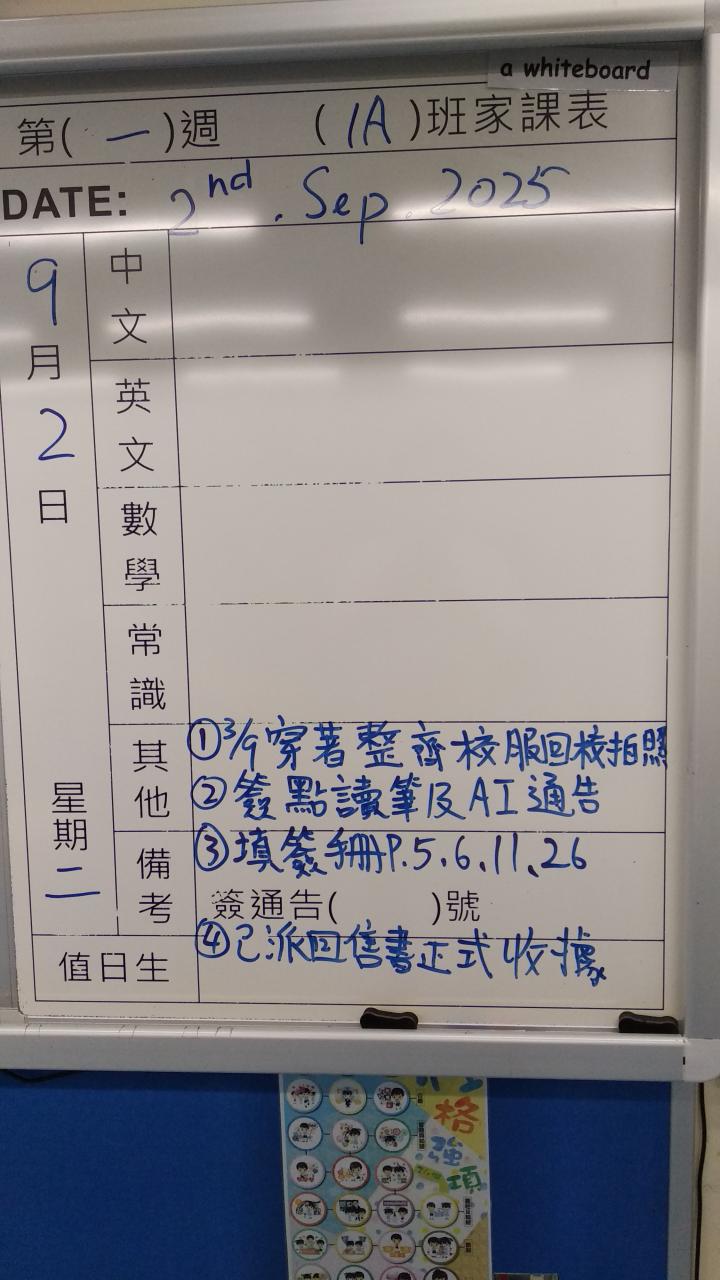 a whiteboard
第(一)週 (1A)班家課表
DATE: 2nd. Sep. 2025
9月2日
星期二
中文
英文
數學
常識
其他
①3/9穿著整齊校服回校拍照
②簽點讀筆及AI通告
備考
③填簽手冊P.5、6、11、26
簽通告( )號
值日生
④已派回售書正式收據
格
強
項